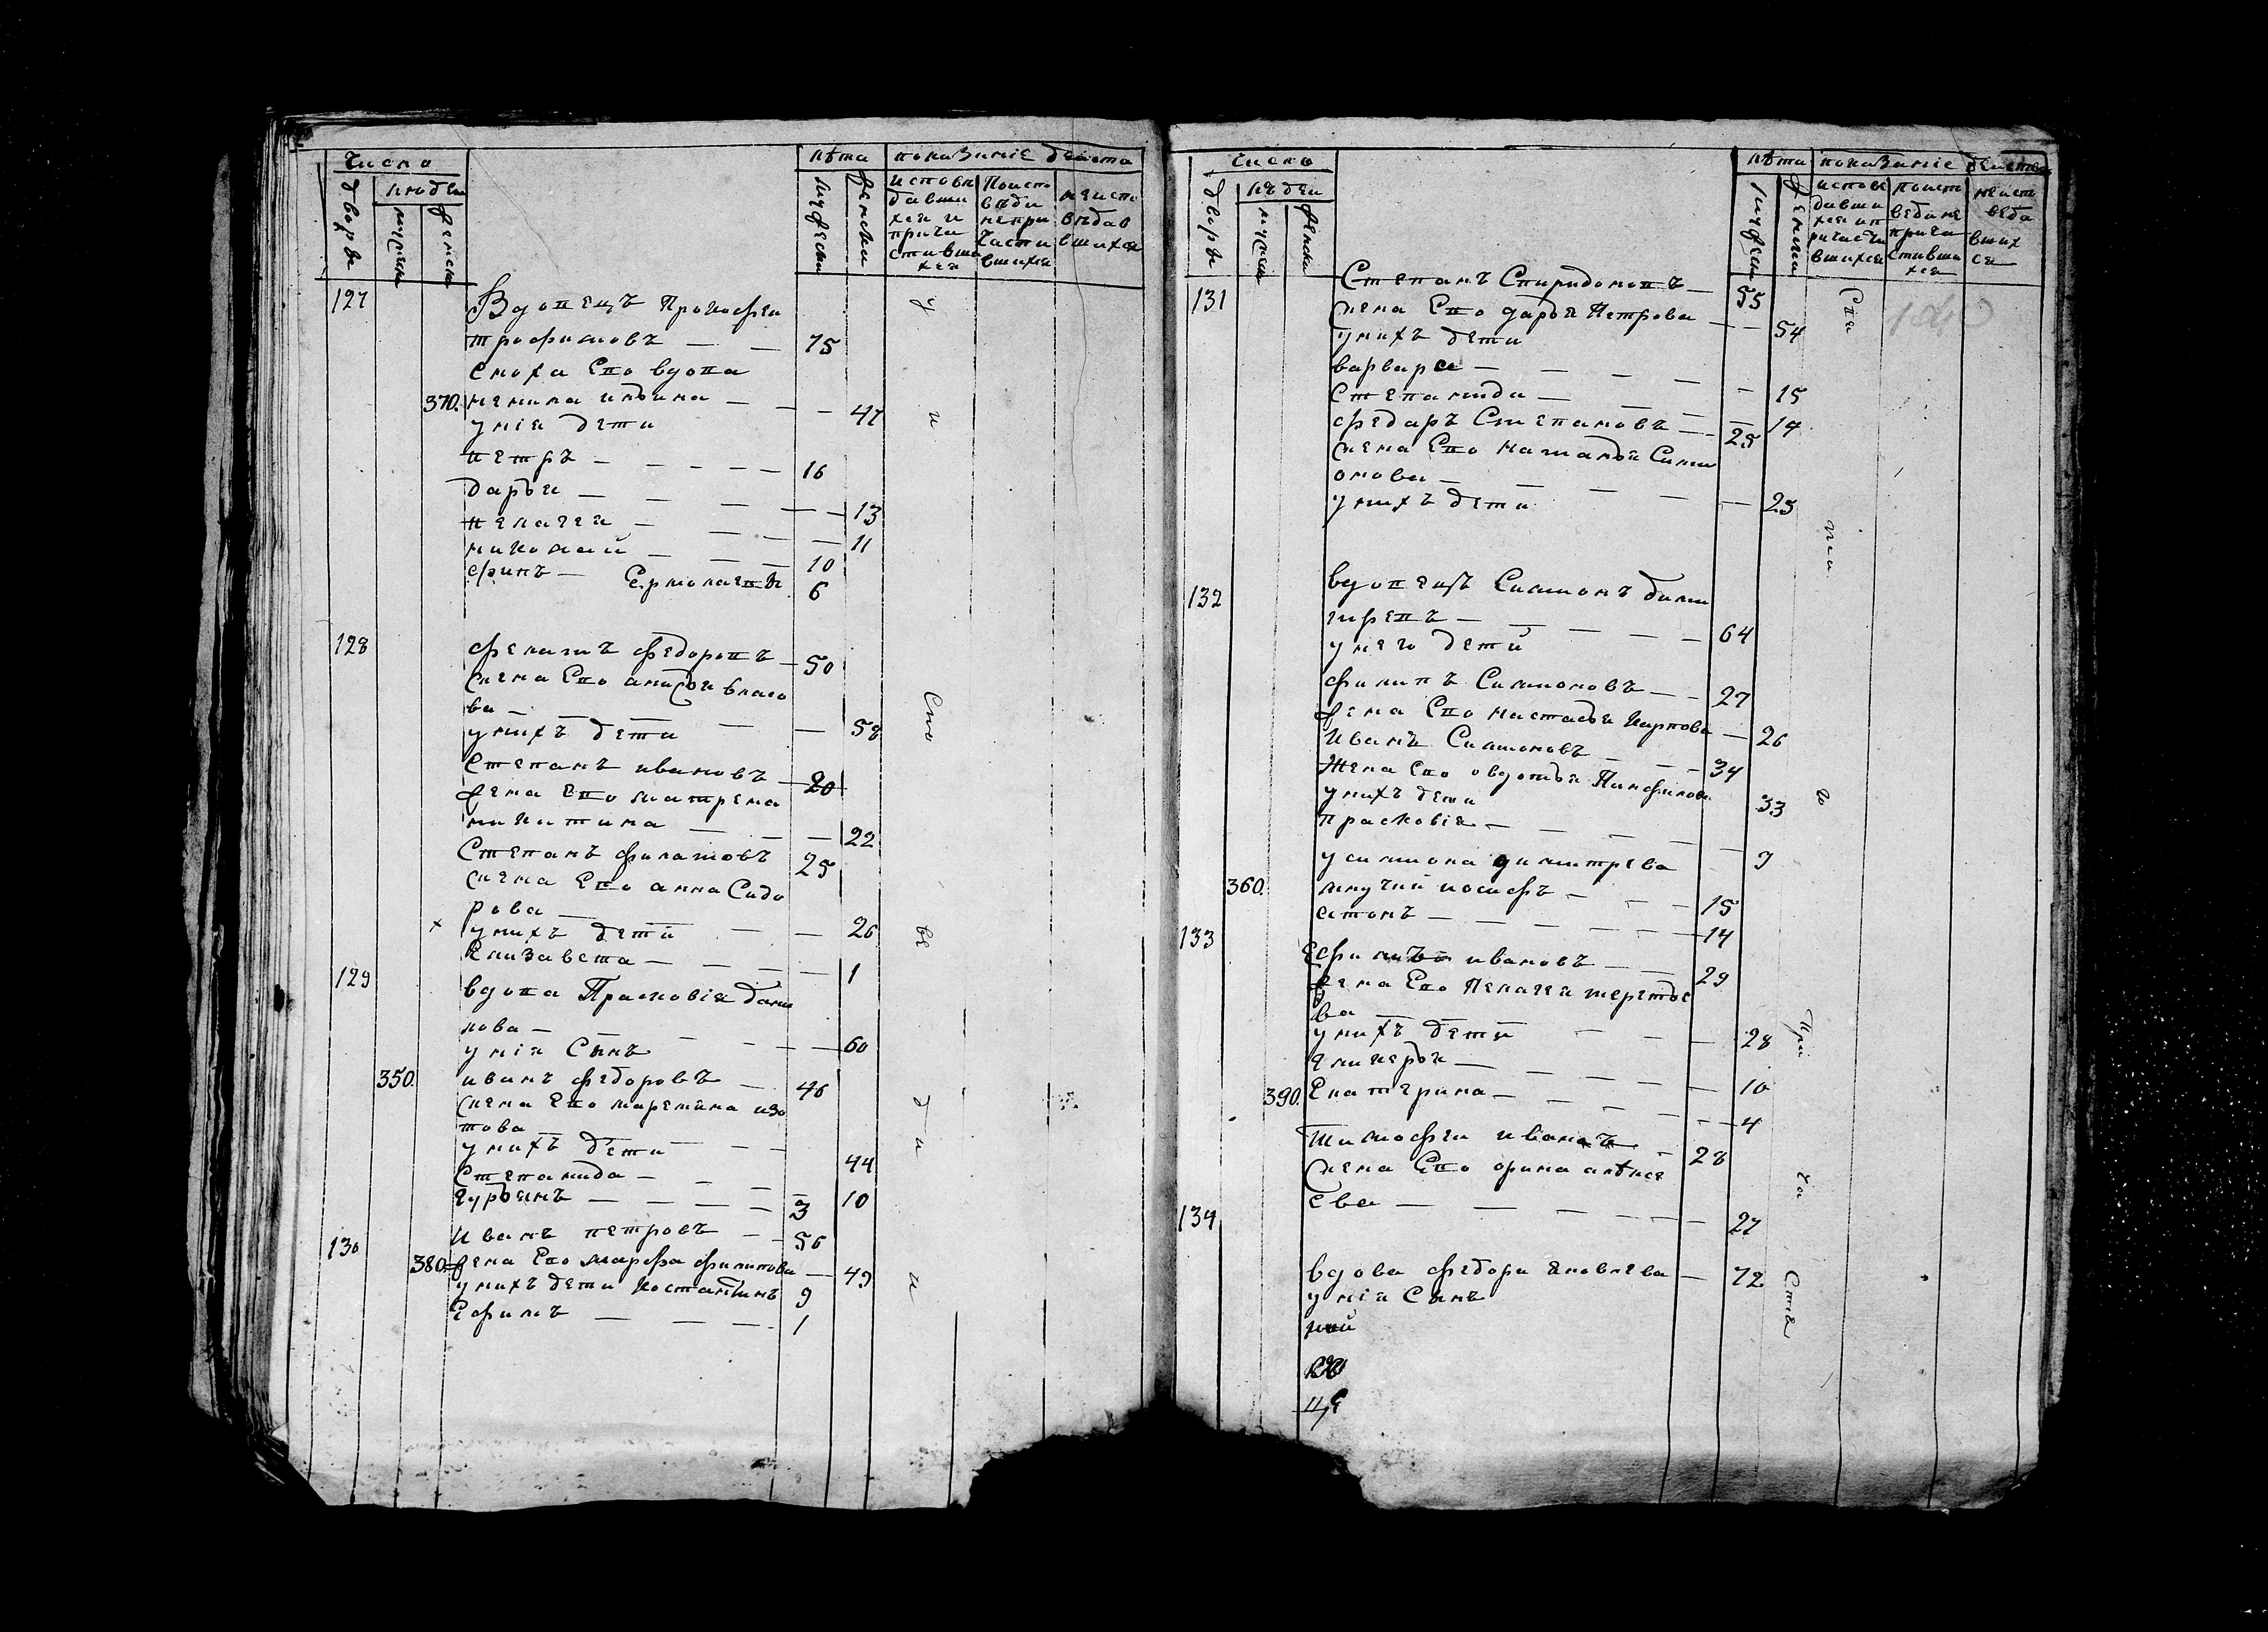 число
дворовъ
людей
мужска
женска
лѣта
мужеска
женска
показание действа
исповѣ
давши
хся и
причас
тивши
хся
Поиспо
вѣди
непри
части
вшихся
неиспо
вѣдав
шихся
127
Вдовецъ Прокофеи
трофимовъ — — 75
сноха Его вдова
370. ненила ильина — — — 47
унія дети
петръ — — — — — 16
дарья — — — — — 13
пелагея — — — — — 11
николаи — — — — 10
Ермолаевы 6
128
филатъ федоровъ — 50
жена Его анисья власо
ва — — — — — 58
унихъ дети
Степанъ ивановъ — 20
жена Его матрена
никитина — — — 22
Степанъ филатовъ 25
жена Его анна Сидо
рова — — — 26
х унихъ дети
Елизавета — — — — 1
129
вдова Прасковія дани
лова — — — — — 60
унія Сынъ
350. иванъ федоровъ — 46
жена Его маремяна изо
това — — — 44
унихъ дети
Степанида — — — — 10
гурьянъ — — — — 3
130
иванъ петровъ — — 56
380. жена Его марфа филипова — 49
унихъ дети костантинъ 9
Ефимъ — — — 1
у
и
спо
вѣ
д
и
и
число
дворовъ
людеи
мужска
женска
лѣта
мужеска
женски
показание действа
испове
давши
хся ип
ричасти
вшихся
поисп
ведине
прича
стивши
хся
неисп
веда
вших
ся
131
Степанъ Спиридоновъ — 55
жена Его дарья Петрова — — 54
унихъ дети
варвара — — — — — 15
Степанида — — — — 14
федаръ Степановъ — — 25
жена Его наталья Сими
онова — — — — — 25
унихъ дети
132
вдовецъ Симионъ дими
триевъ — — — — — 64
унего дети
филипъ Симионовъ — — 27
жена Его настасья карпова — 26
иванъ Симионовъ — — — 34
Жена Его овдотья Панфилова 33
унихъ дети
прасковія — — — — — 9
усимиона димитрева
360. внучии иосифъ — — — — 15
антонъ — — — — — — 14
133
Ефимъ ивановъ — — 29
жена Его Пелагея терентье
ва — — — — 28
унихъ дети
гликерья — — — — — 10
390. Екатерина — — — — — — 4
тимофеи иванъ — 28
жена Его орина алѣксе
ева — — — — — — 27
134
вдова федора яковлева — 72
унія Сынъ
При
ча
стия